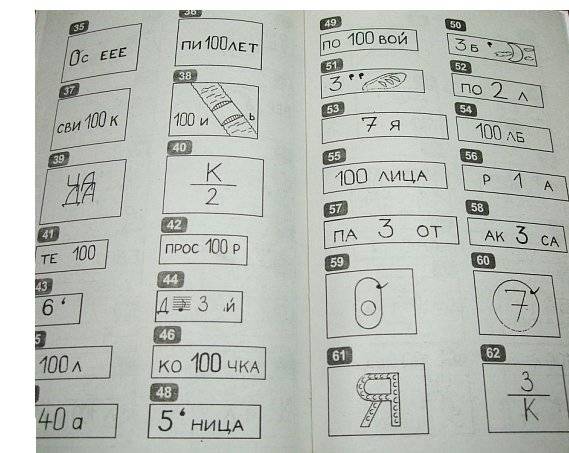 35
Ос ЕЕЕ
36
ПИ 100 ЛЕТ
37
СВИ 100 К
38
100 И Ь
39
ЧА
ДА
40
К
2
41
ТЕ 100
42
ПРОС 100 Р
43
6 ‘
44
Д 3 ,Й
5
100 Л
46
КО 100 ЧКА
40 а
48
5 ‘ НИЦА
49
ПО 100 ВОЙ
50
3 Б ‘
51
3 ‘ ‘
52
ПО 2 Л
53
7 Я
54
100 ЛБ
55
100 ЛИЦА
56
Р 1 А
57
ПА 3 ОТ
58
АК 3 СА
59
О
60
7
61
Я
62
3
К